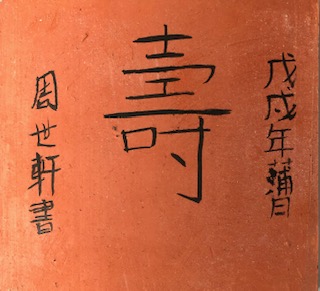 戊戌年蒲月
壽
周世軒書